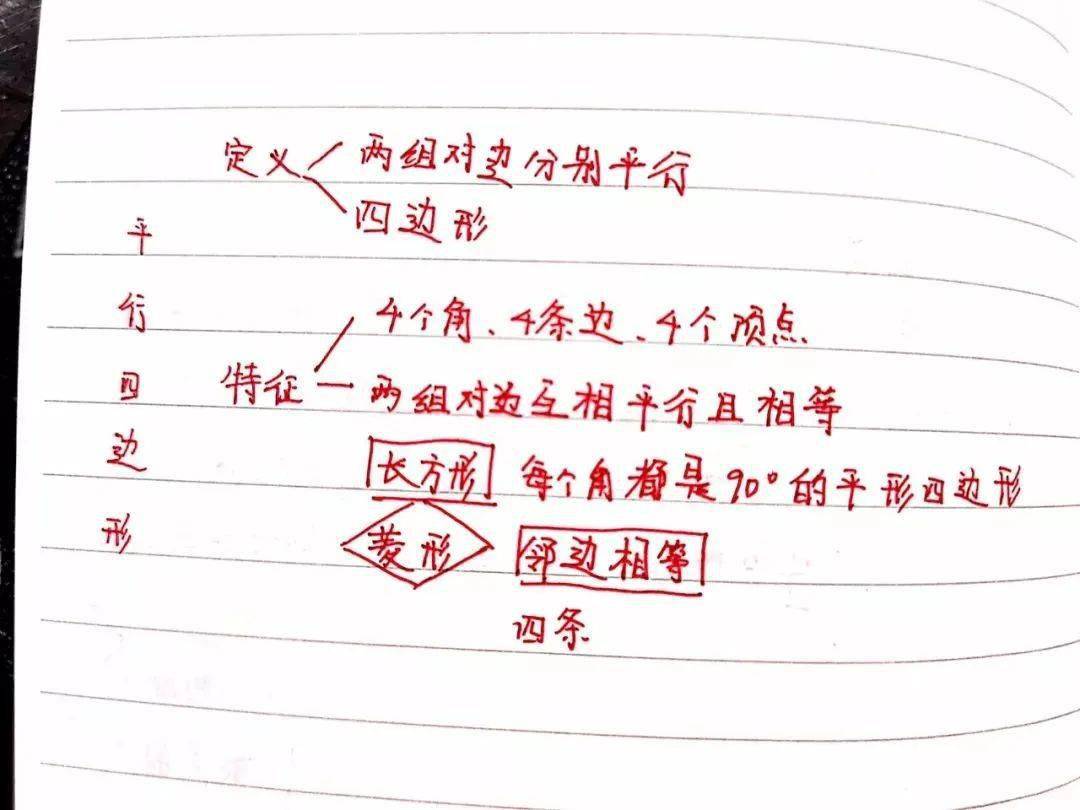 平行四边形
定义
两组对边分别平行
四边形
特征
4个角、4条边、4个顶点
两组对边互相平行且相等
长方形 每个角都是90°的平形四边形
菱形 邻边相等
四条